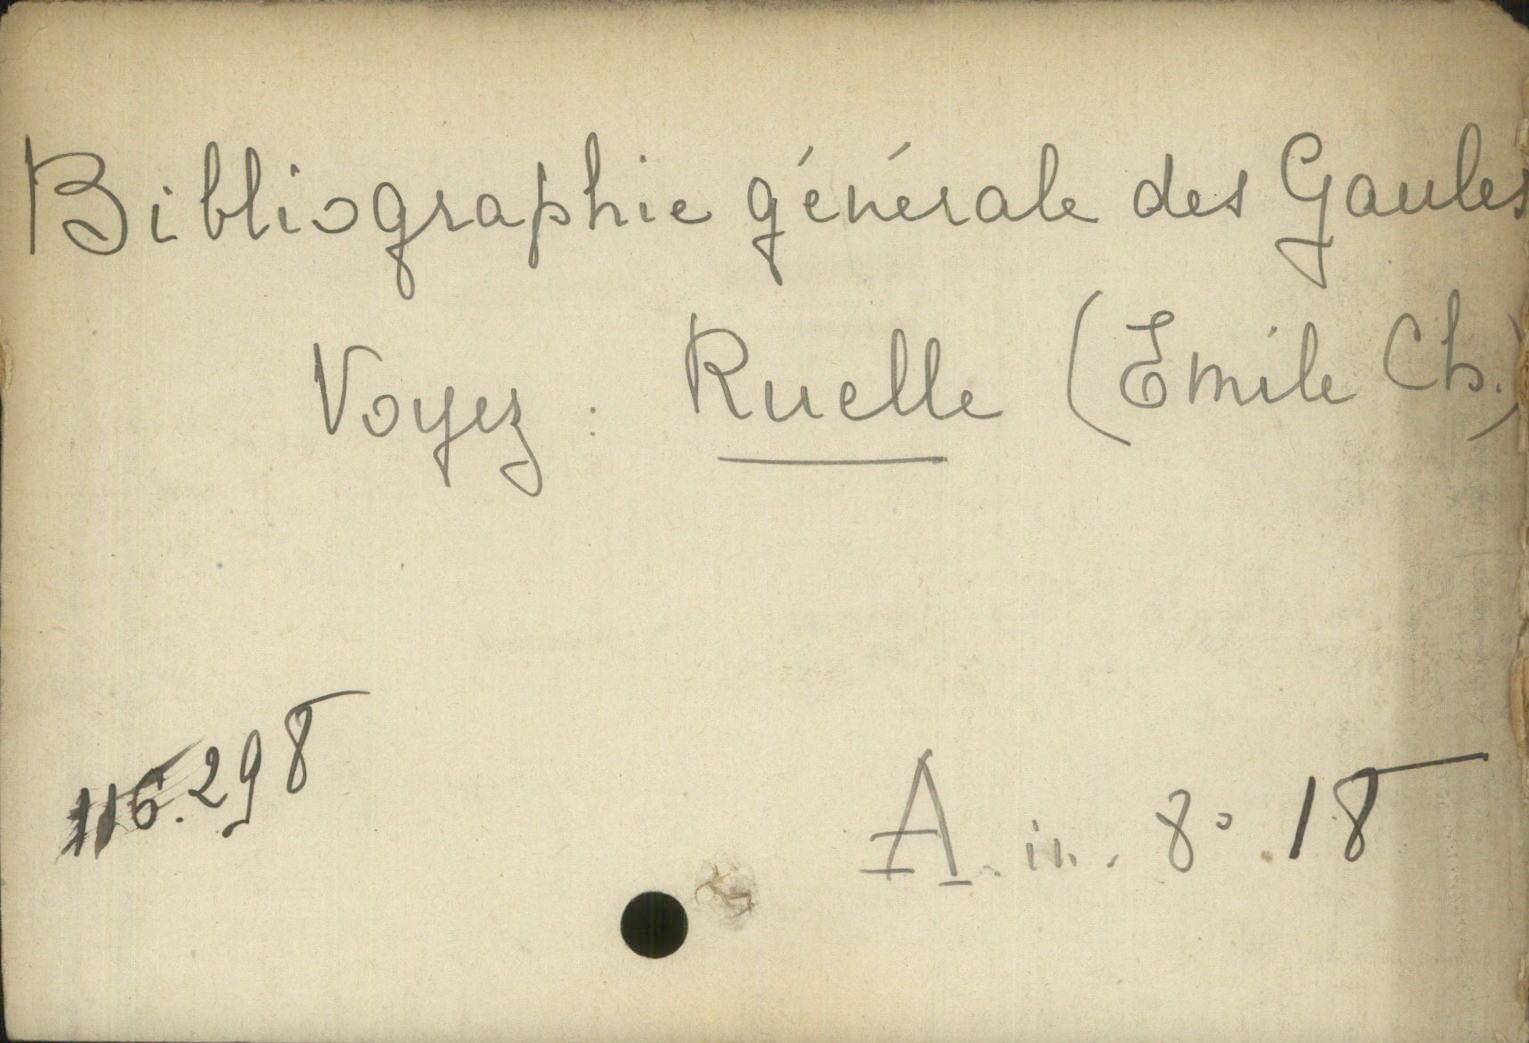 Bibliographie générale des Gaules
Voyez : Ruelle (Emile Ch.)
116.298
A. in. 8° 18